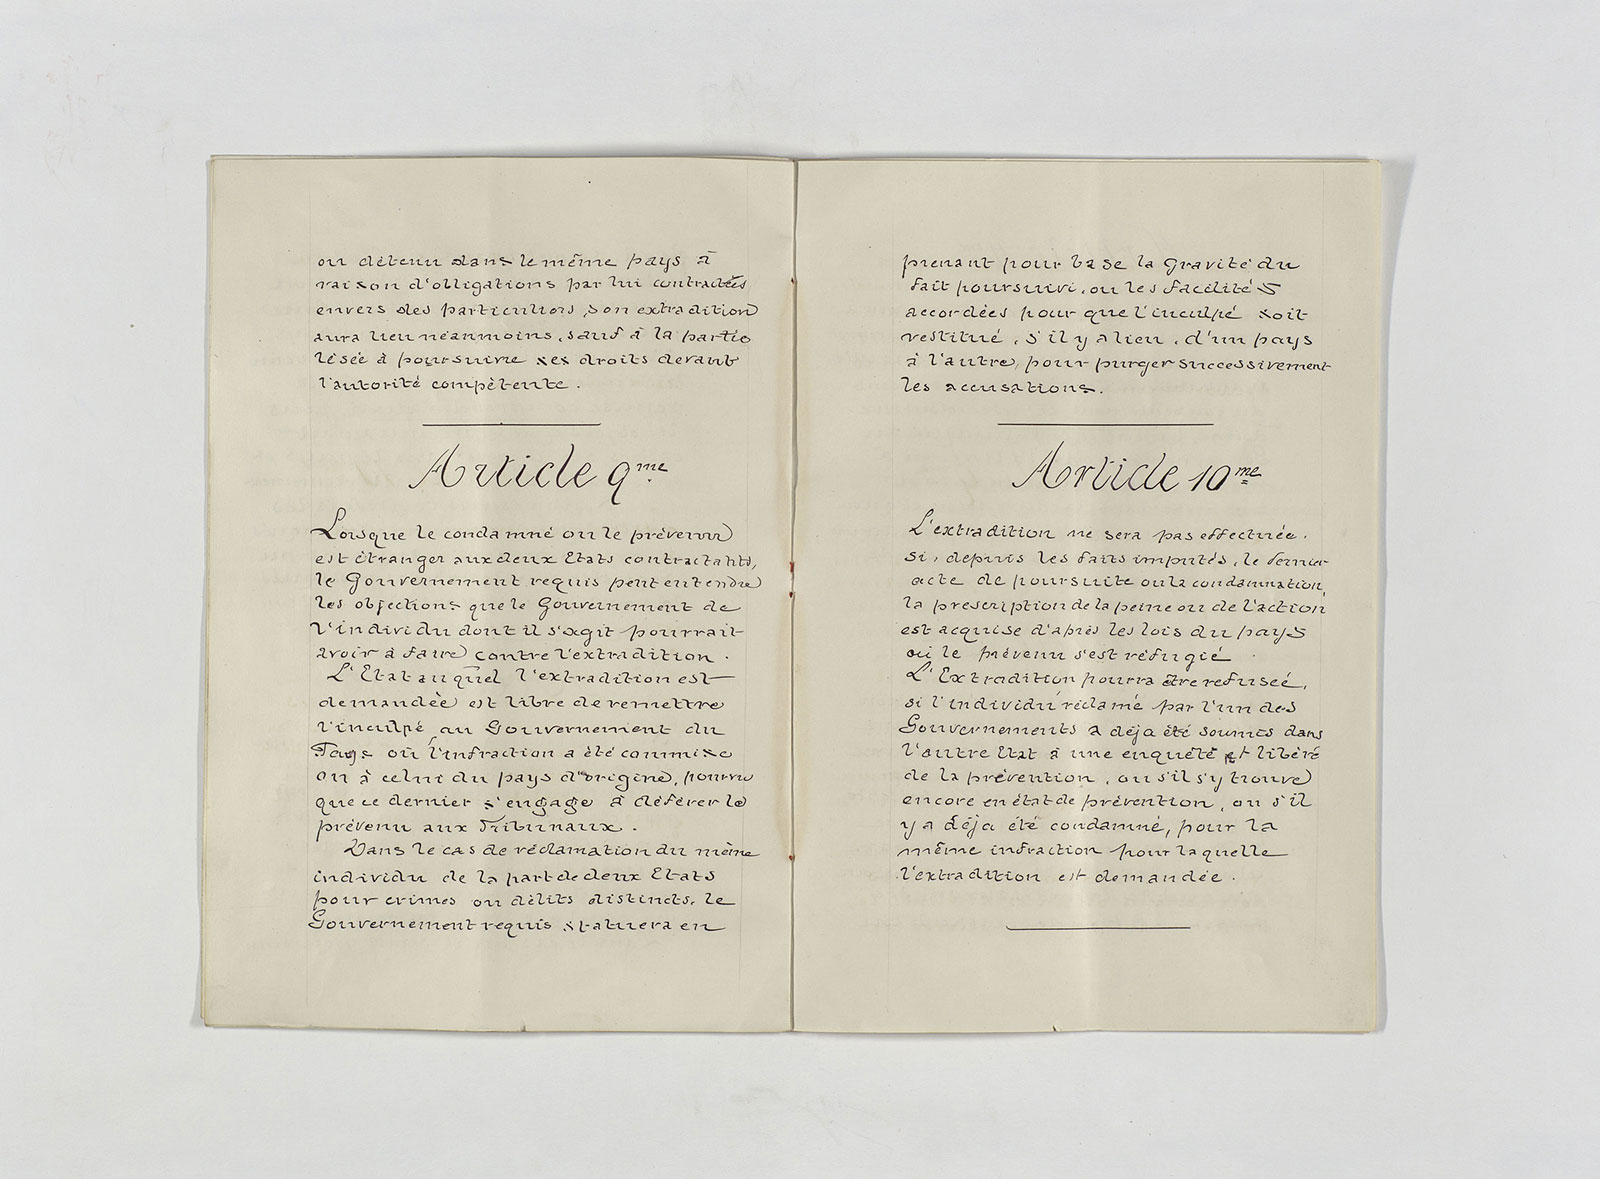 ou détenu dans le même pays à
raison d'obligations par lui contractées
envers des particuliers, son extradition
aura lieu néanmoins, sauf à la partie
lésée à poursuivre ses droits devant
l'autorité compétente.
Article 9me
Lorsque le condamné ou le prévenu
est étranger aux deux Etats contractants,
le Gouvernement requis peut entendre
les objections que le Gouvernement de
l'individu dont il s'agit pourrait
avoir à faire contre l'extradition.
L'Etat auquel l'extradition est
demandée est libre de remettre
l'inculpé au Gouvernement du
Pays où l'infraction a été commise
ou à celui du pays d'origine, pourvu
que ce dernier s'engage à déférer le
prévenu aux Tribunaux.
Dans le cas de réclamation du même
individu de la part de deux Etats
pour crimes ou délits distincts, le
Gouvernement requis statuera en
prenant pour base la gravité du
fait poursuivi, ou les facilités
accordées pour que l'inculpé soit
restitué, s'il y a lieu, d'un pays
à l'autre, pour purger successivement
les accusations.
Article 10me
L'extradition ne sera pas effectuée,
si, depuis les faits imputés, le dernier
acte de poursuite ou la condamnation,
la prescription de la peine ou de l'action
est acquise d'après les lois du pays
où le prévenu s'est réfugié
L'Extradition pourra être refusée,
si l'individu réclamé par l'un des
Gouvernements a déja été soumis dans
l'autre Etat à une enquête et libéré
de la prévention, ou s'il s'y trouve
encore en état de prévention, ou s'il
y a déja été condamné, pour la
même infraction pour laquelle
l'extradition est demandée.